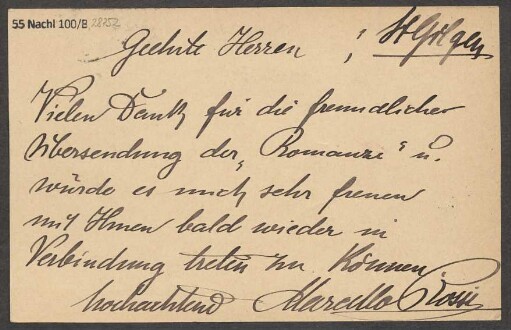 55 Nachl 100/B 28252
St Gilgen
Geehrte Herren
Vielen Dank für die freundliche
Übersendung der „Romanze" u.
würde es mich sehr freuen
mit Ihnen bald wieder in
Verbindung treten zu können
hochachtend Marcello Rossi